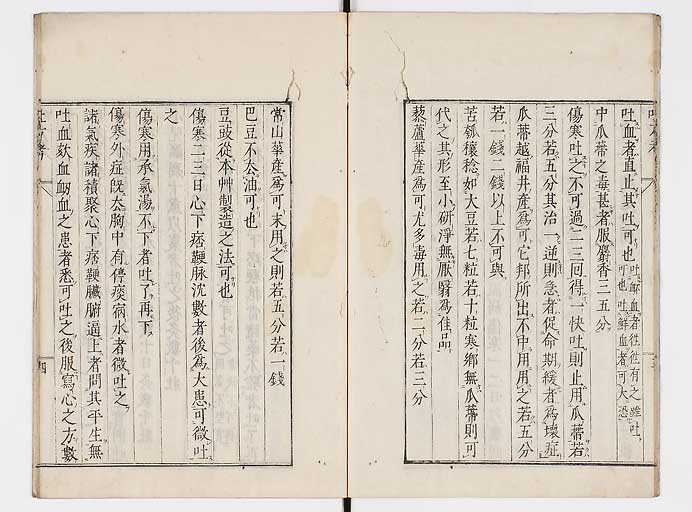 吐血者直止其吐可也吐衂血者往往有之雖吐可也吐鮮血者可大恐
中瓜蒂之毒甚者服麝香三五分
傷寒吐之不可過二三回得一快吐則止用瓜蒂若
三分若五分其治一逆則急者促命期緩者為壞症
瓜蒂越福井産為可它邦所出不中用用之若五分
若一錢二錢以上不可與
苦瓠穰稔如大豆若七粒若十粒寒鄉無瓜蒂則可
代之其形至小研淨無厭翳為佳品
藜蘆華産為可尤多毒用之若二分若三分
常山華産為可末用之則若五分若一錢
巴豆不去油可也
豆豉從本艸製造之法可也
傷寒二三日心下痞鞕脉沈數者後為大患可微吐
之
傷寒用承氣湯不下者吐了再下
傷寒外症既去胸中有停痰病水者微吐之
諸氣疾諸積聚心下痞鞕臟腑逼上者問其平生無
吐血欬血衂血之患者悉可吐之後服寫心之方數
吐方考
四